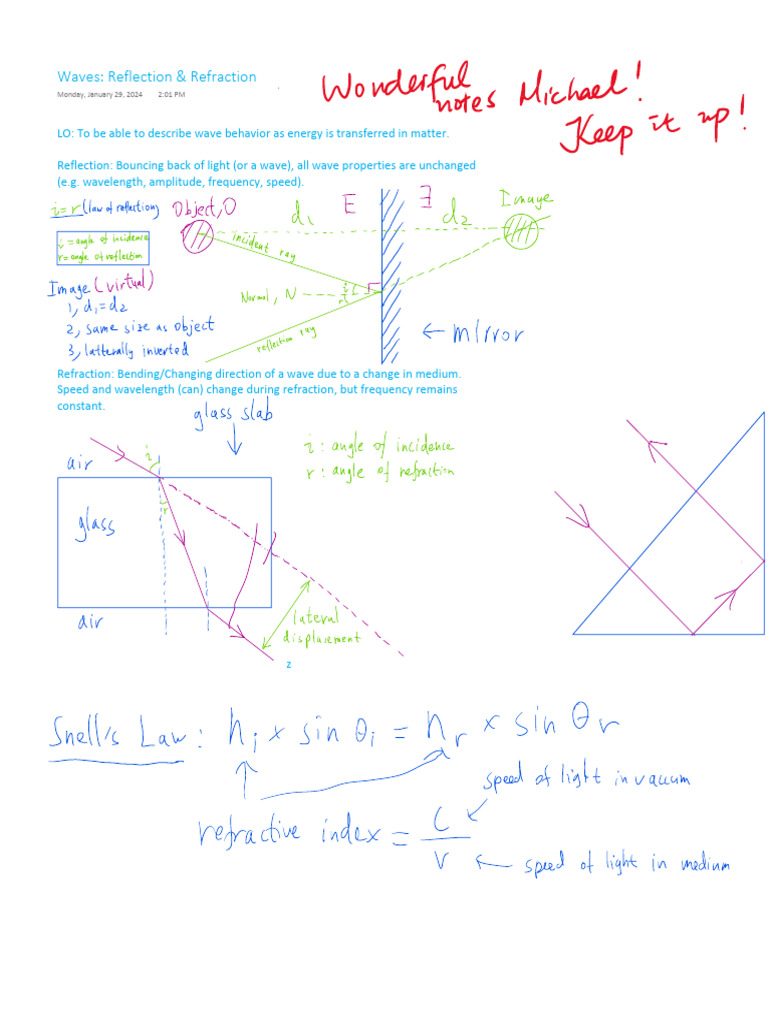 Waves: Reflection & Refraction
Monday, January 29, 2024 2:01 PM
Wonderful
notes Michael!
Keep it up!
LO: To be able to describe wave behavior as energy is transferred in matter.
Reflection: Bouncing back of light (or a wave), all wave properties are unchanged
(e.g. wavelength, amplitude, frequency, speed).
i=r (law of reflection)
i = angle of incidence
r = angle of reflection
Object, O
d₁
E
Ǝ
d₂
Image
incident ray
Normal, N
i
r
reflection ray
Image (virtual)
1, d₁=d₂
2, same size as object
3, latterally inverted
← mirror
Refraction: Bending/Changing direction of a wave due to a change in medium.
Speed and wavelength (can) change during refraction, but frequency remains
constant.
glass slab
i : angle of incidence
r : angle of refraction
air
i
glass
r
air
lateral
displacement
2
Snell's Law: nᵢ x sin θᵢ = nᵣ x sin θr
speed of light in vacuum
refractive index = C
V
speed of light in medium